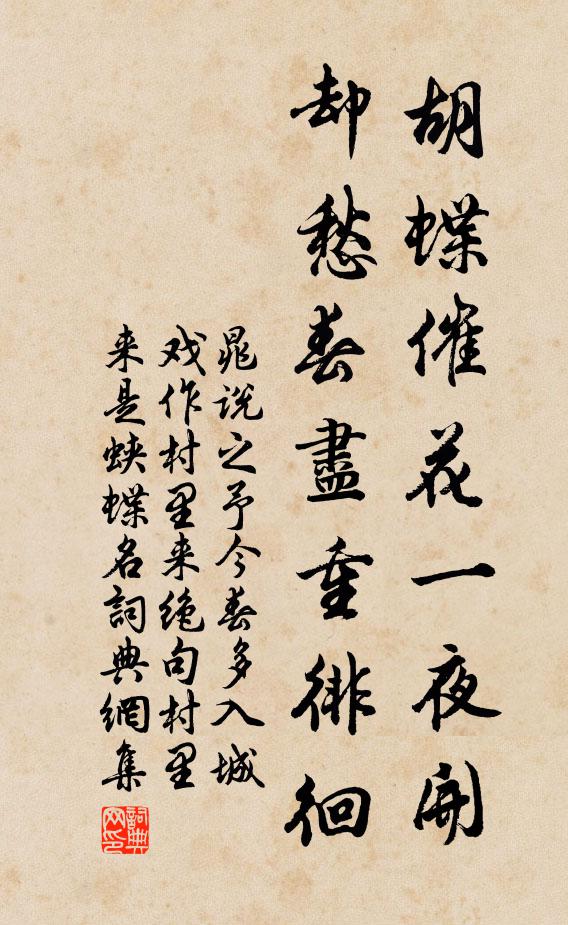 胡蝶催花一夜開
却愁春盡重徘徊
晁说之予今春多入城
戏作村里来绝句村里
来是蛱蝶名詞典網集
詞典
网印